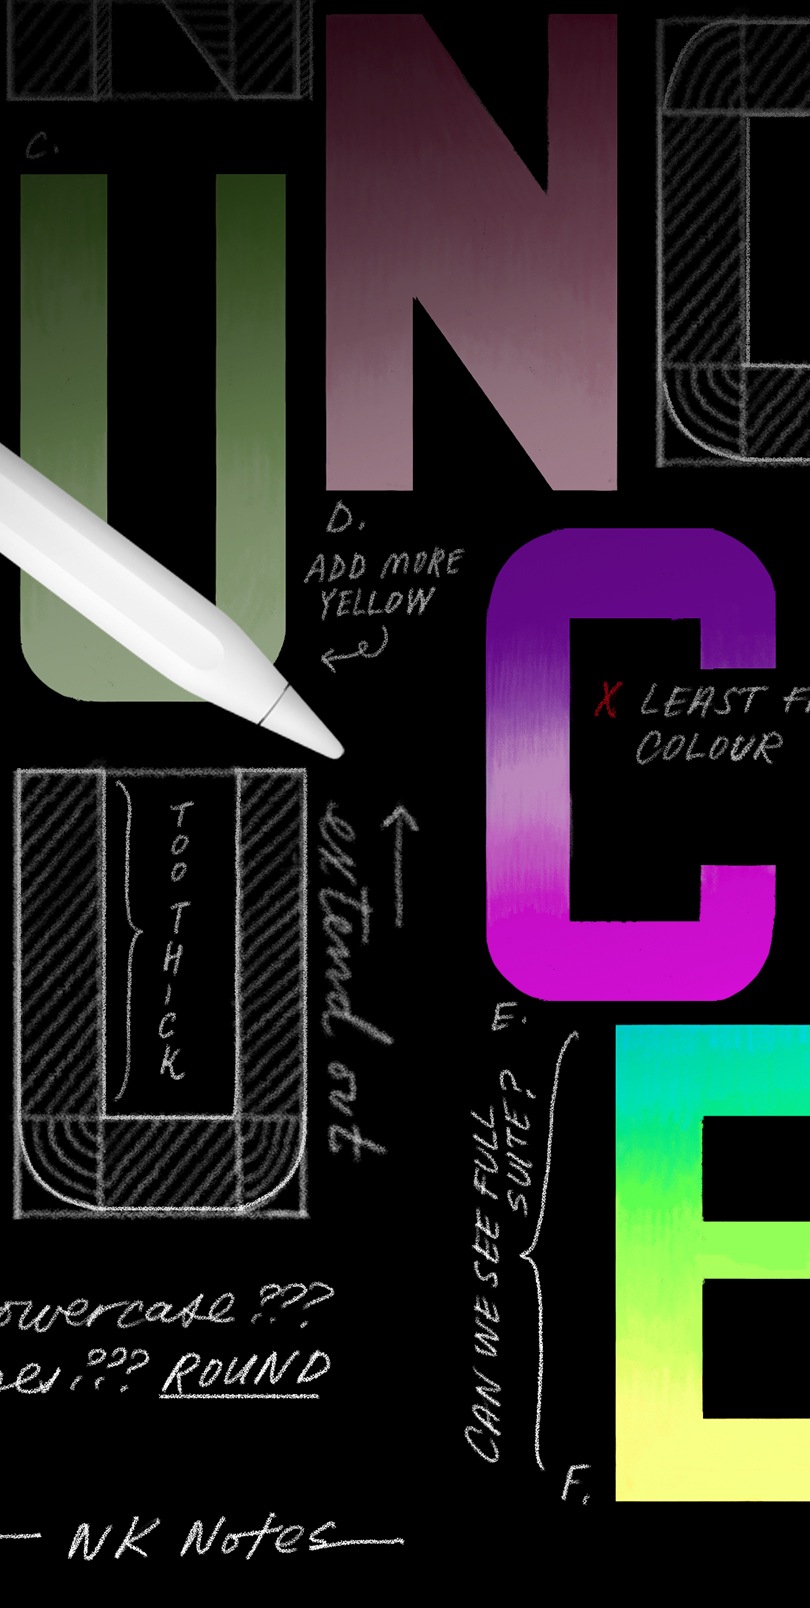 N
C.
U
D.
ADD MORE
YELLOW
C
X LEAST
COLOUR
U
TOO THICK
extend out
E.
CAN WE SEE FULL
SUITE?
E
F.
owercase ???
??? ROUND
NK Notes